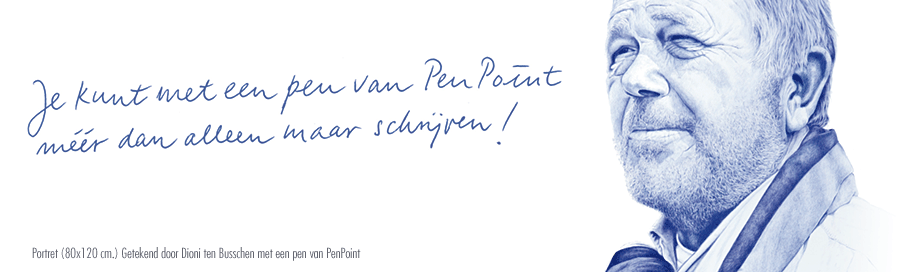 Je kunt met een pen van PenPoint
méér dan alleen maar schrijven!
Portret (80x120 cm.) Getekend door Dioni ten Busschen met een pen van PenPoint